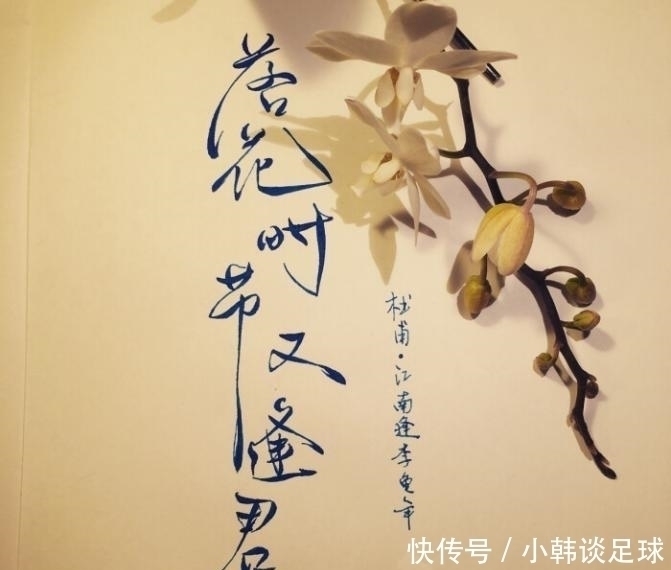 落花时节又逢君
杜甫·江南逢李龟年
快传号 / 小韩谈足球